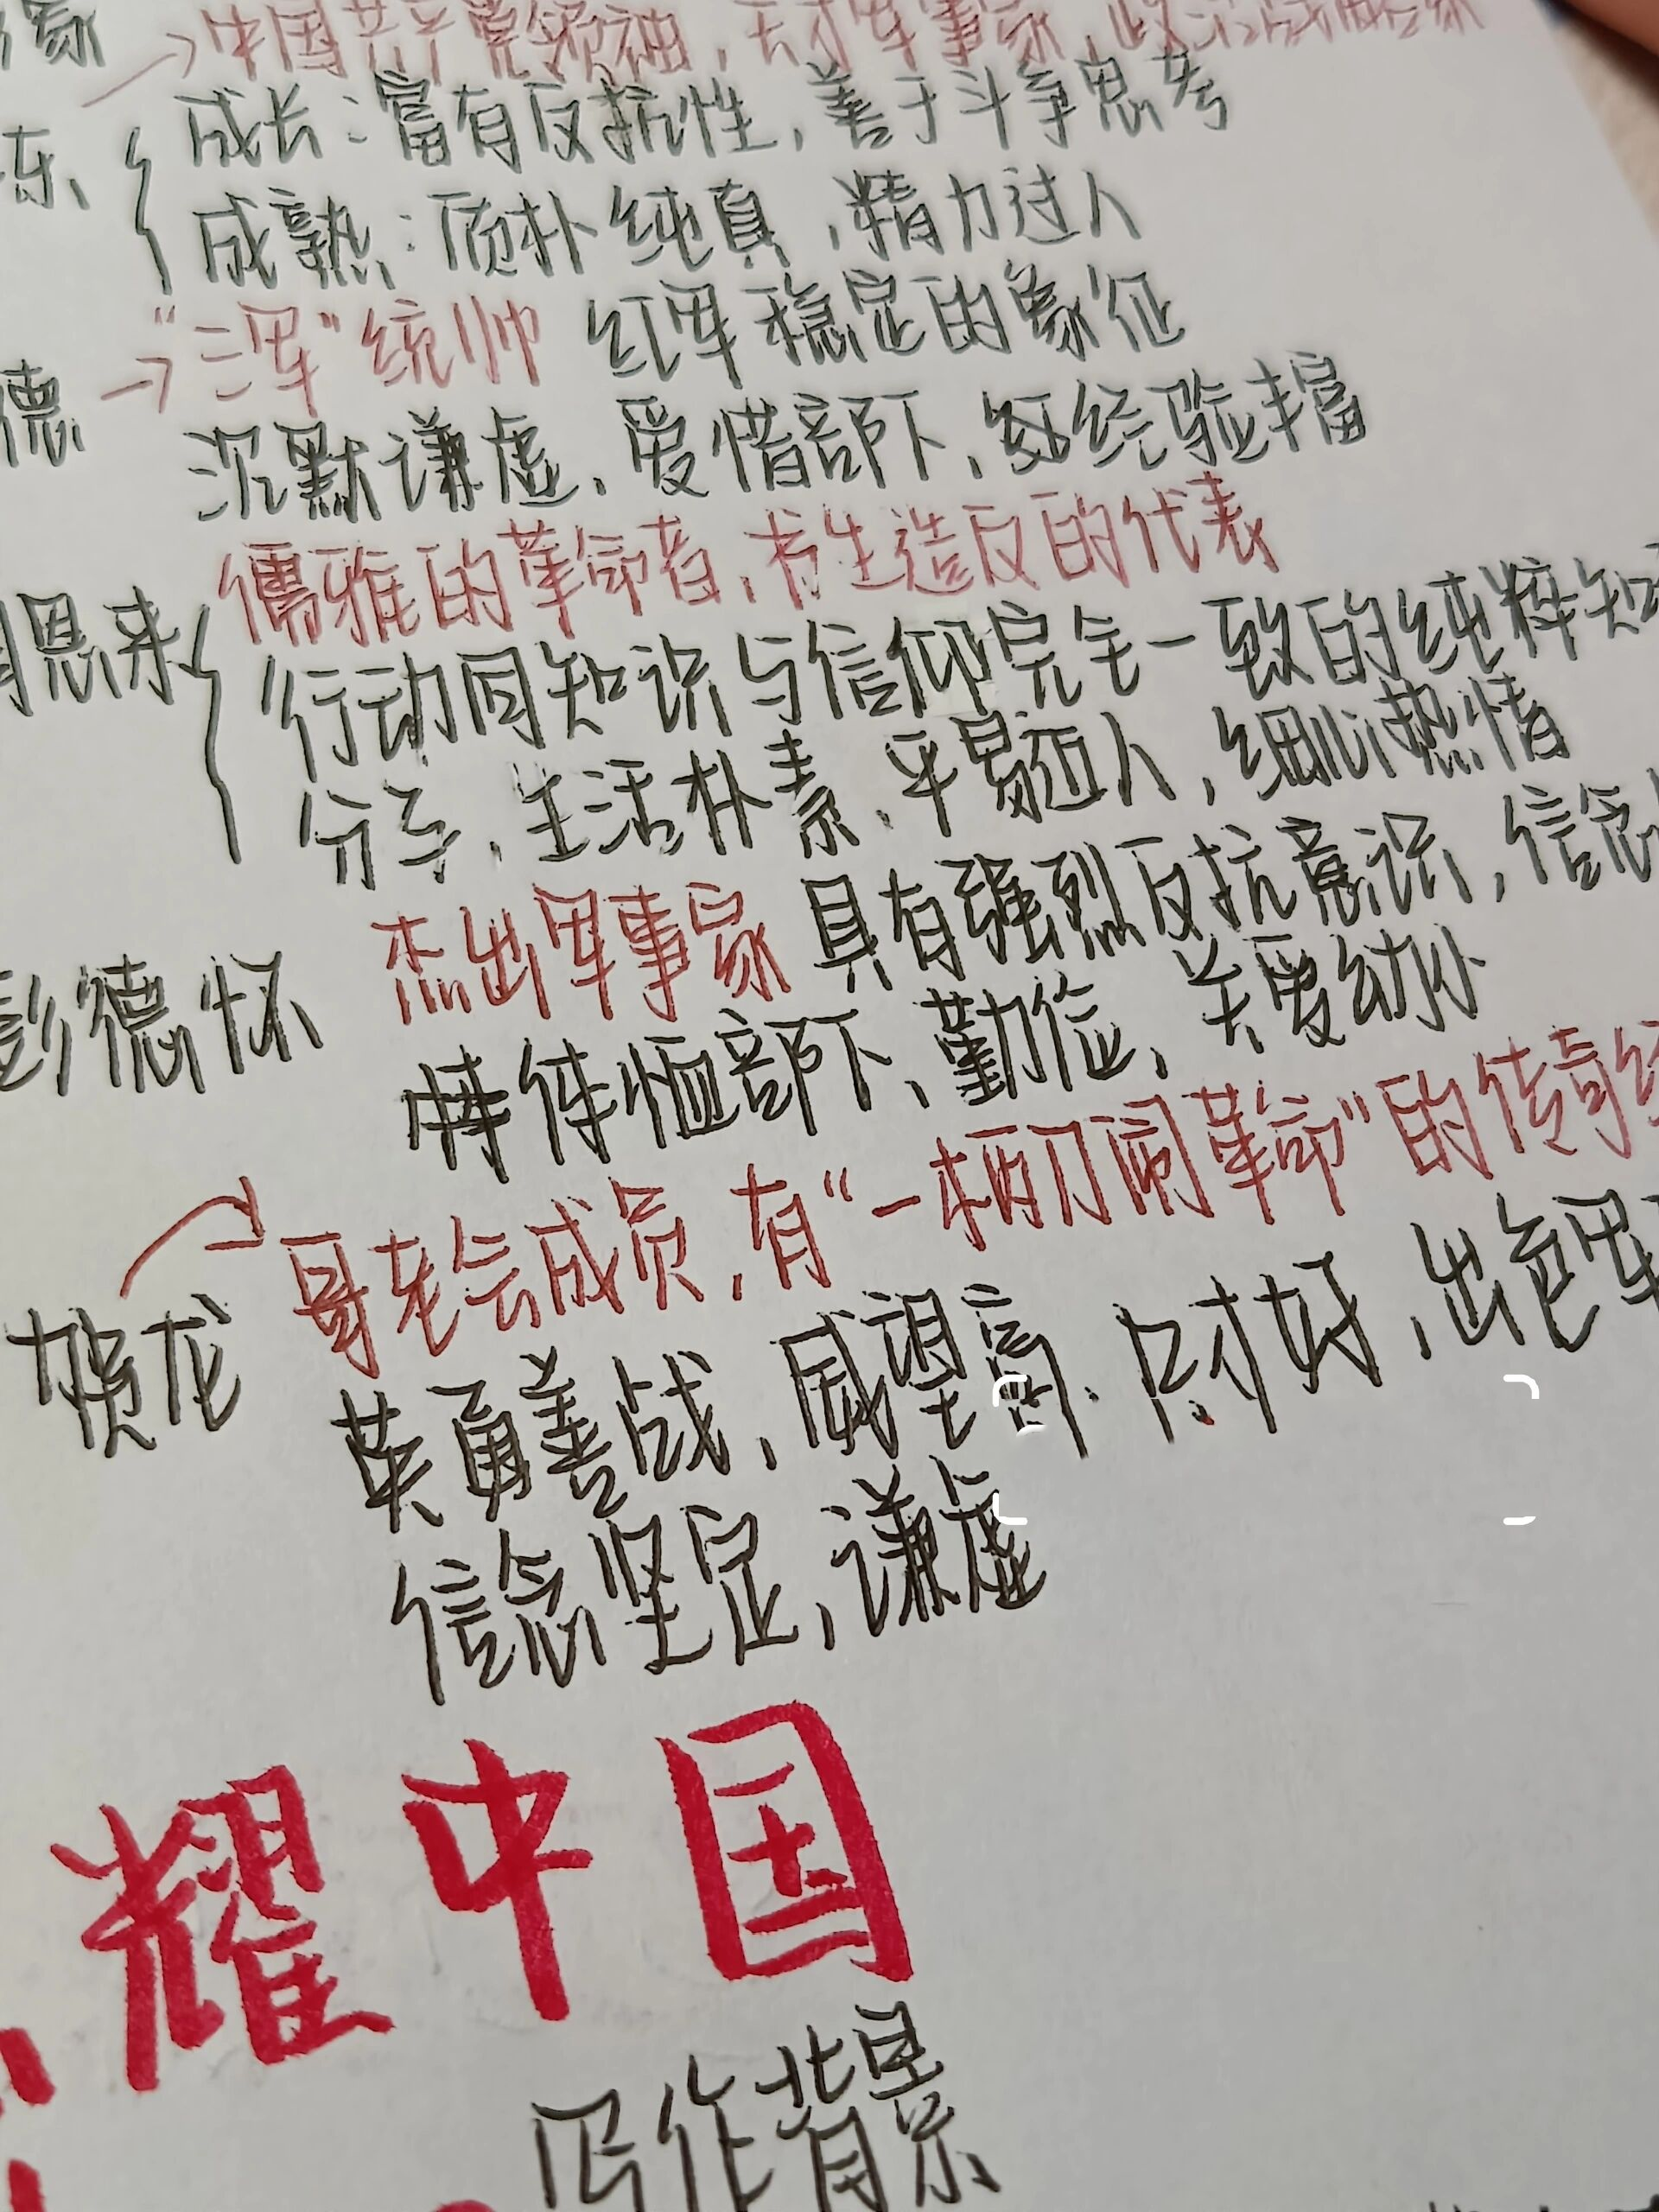 →中国共产党领袖，天才军事家，政治战略家
成长：富有反抗性，善于斗争思考
东
成熟：质朴纯真，精力过人
→"三军"统帅 红军稳定的象征
德
沉默谦虚，爱惜部下，经验丰富
儒雅的革命者，书生造反的代表
周恩来
行动同知识与信仰完全一致的纯粹知
分子，生活朴素，平易近人，细心热情
彭德怀 杰出军事家 具有强烈反抗意识，信念
体恤部下、勤俭、关爱幼小
哥老会成员，有"一柄刀闹革命"的传奇经
贺龙
英勇善战，威望高，口才好，出色军
信念坚定，谦虚
耀中国
写作背景